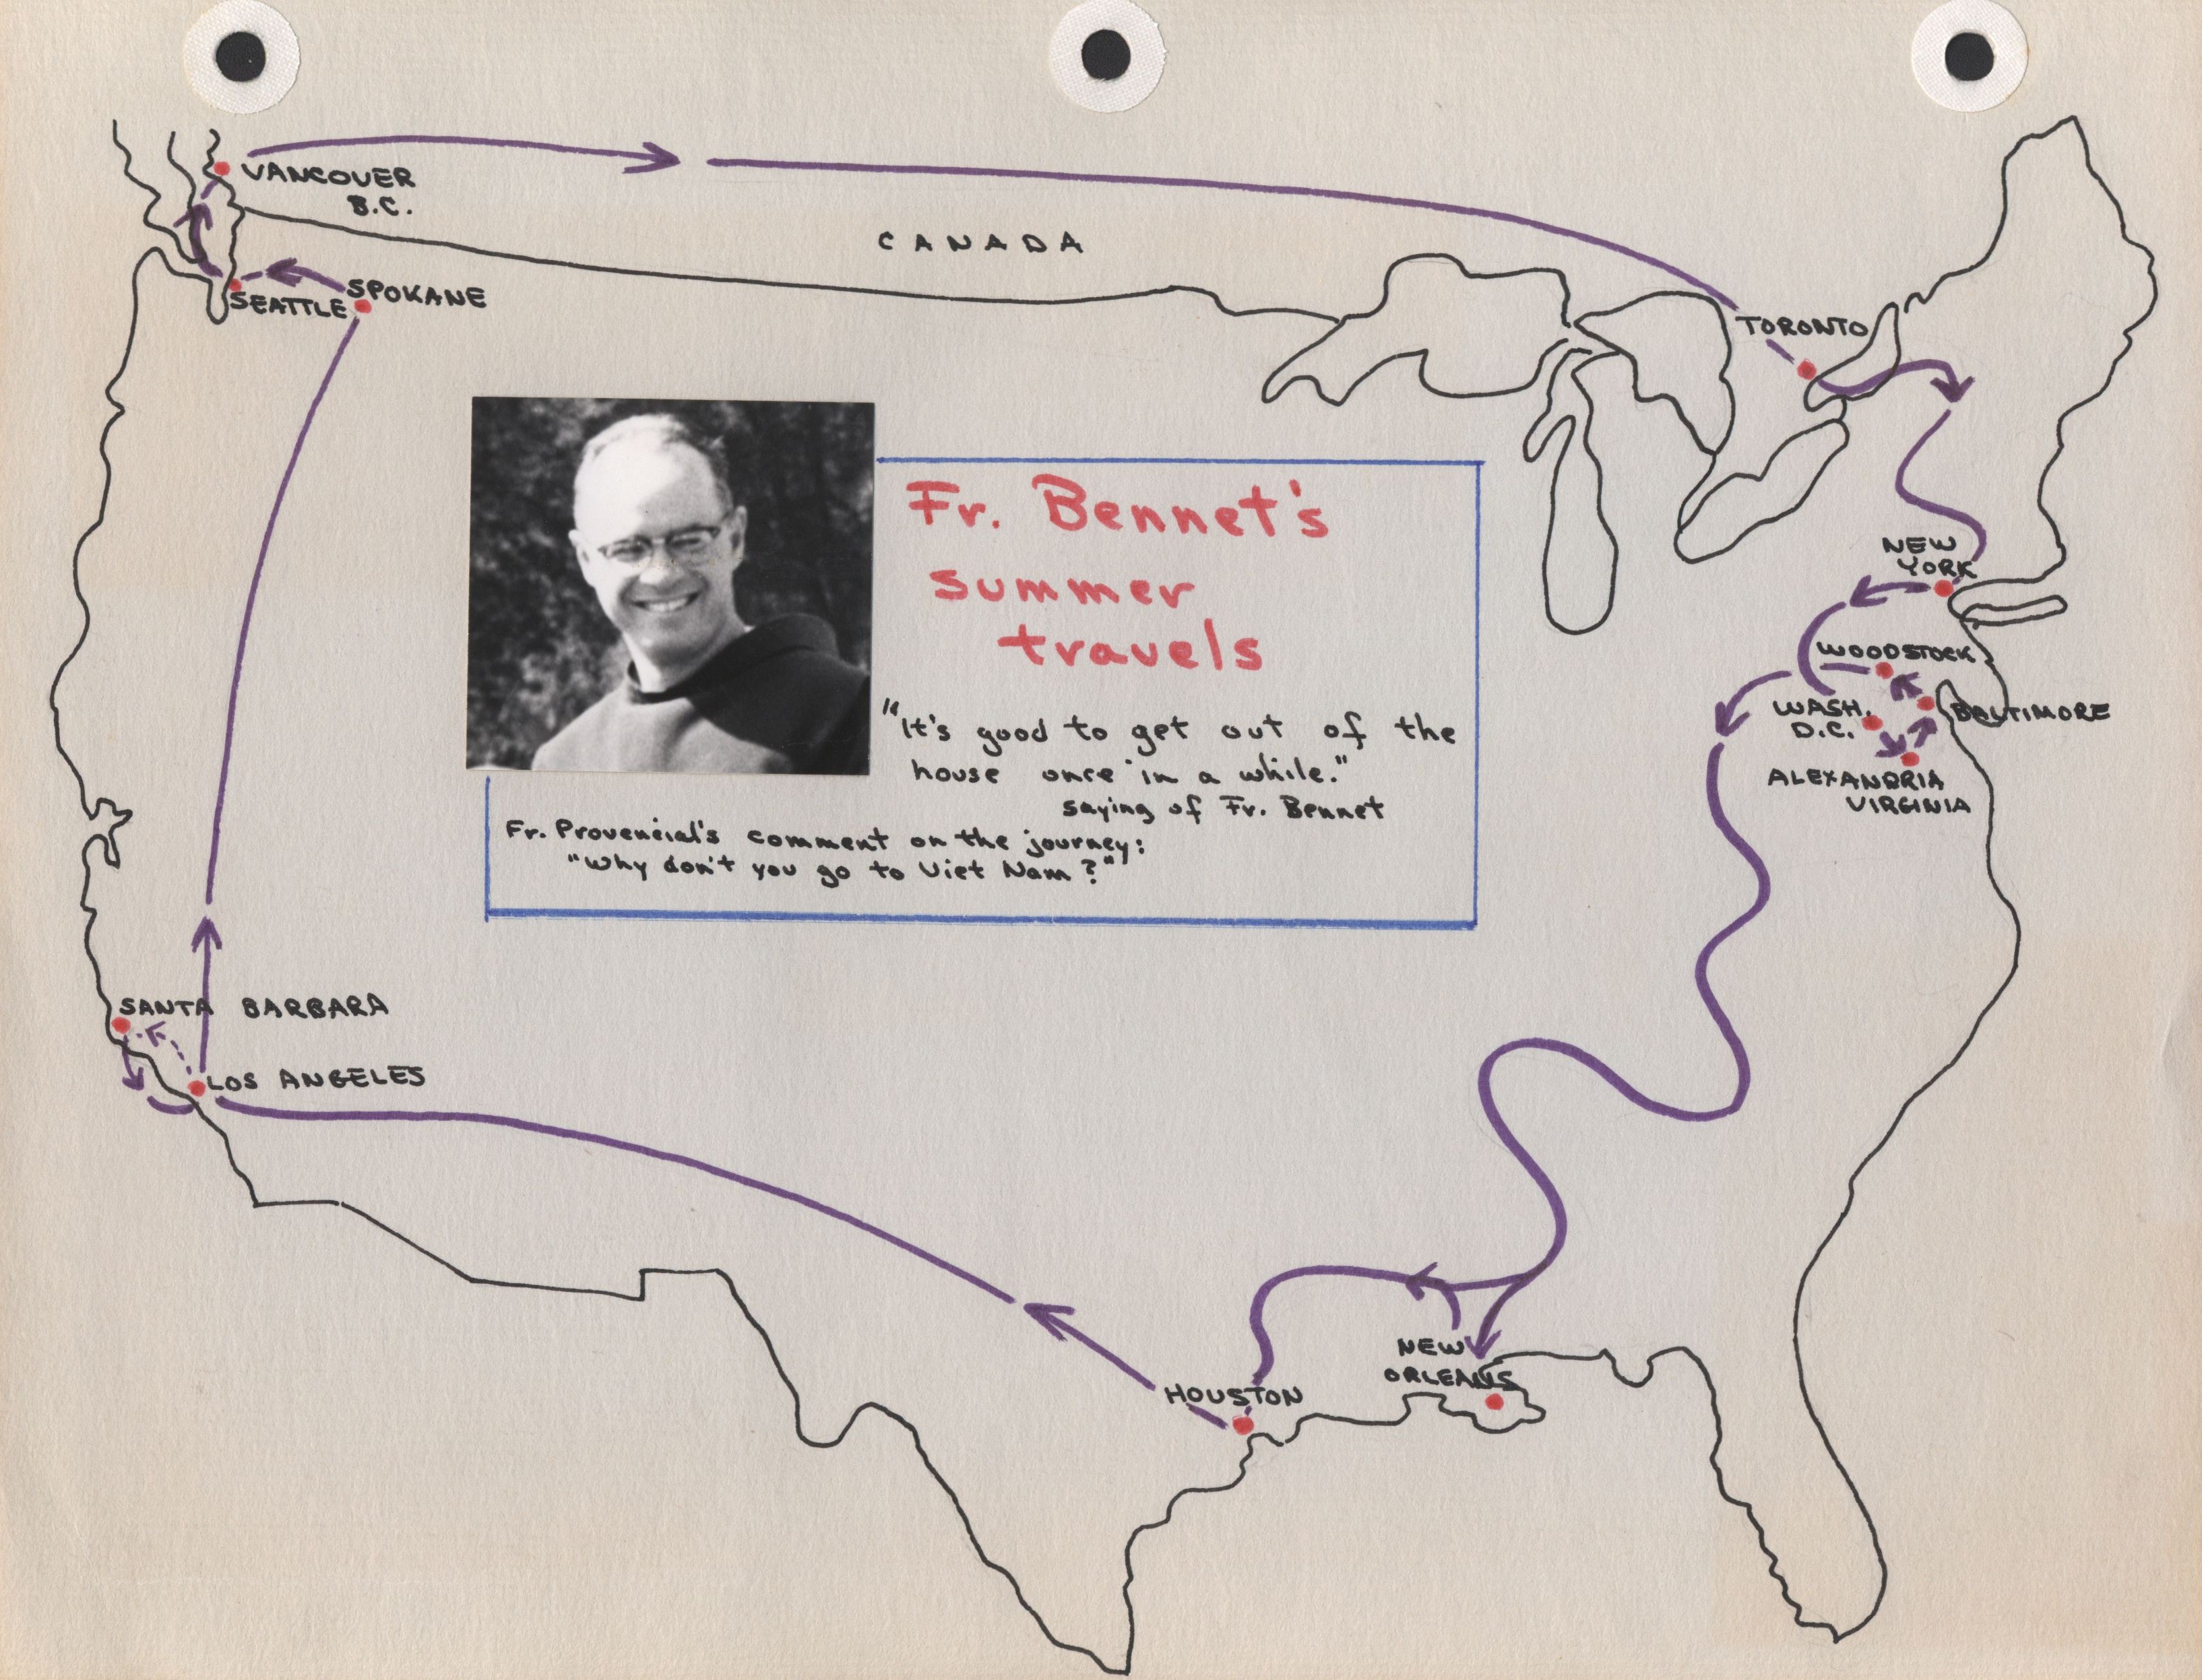 VANCOUVER
B.C.
CANADA
SEATTLE
SPOKANE
TORONTO
Fr. Bennet's
summer
travels
"It's good to get out of the
house once in a while."
saying of Fr. Bennet
Fr. Provencial's comment on the journey:
"Why don't you go to Viet Nam?"
NEW
YORK
WOODSTOCK
WASH.
D.C.
BALTIMORE
ALEXANDRIA
VIRGINIA
SANTA BARBARA
LOS ANGELES
HOUSTON
NEW
ORLEANS